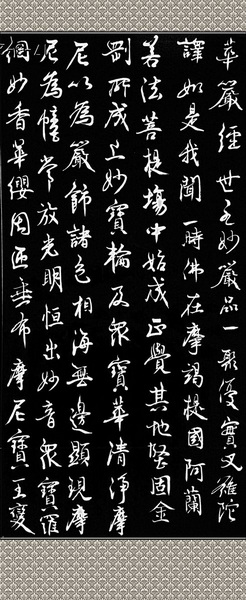 華嚴經世主妙嚴品一實叉難陀
譯如是我聞一時佛在摩竭提國阿蘭
若法菩提場中始成正覺其地堅固金
剛所成上妙寶輪及眾寶華清淨摩
尼以為嚴飾諸色相海無邊顯現摩
尼為幢常放光明恒出妙音眾寶羅
網妙香華纓周匝垂布摩尼寶王變